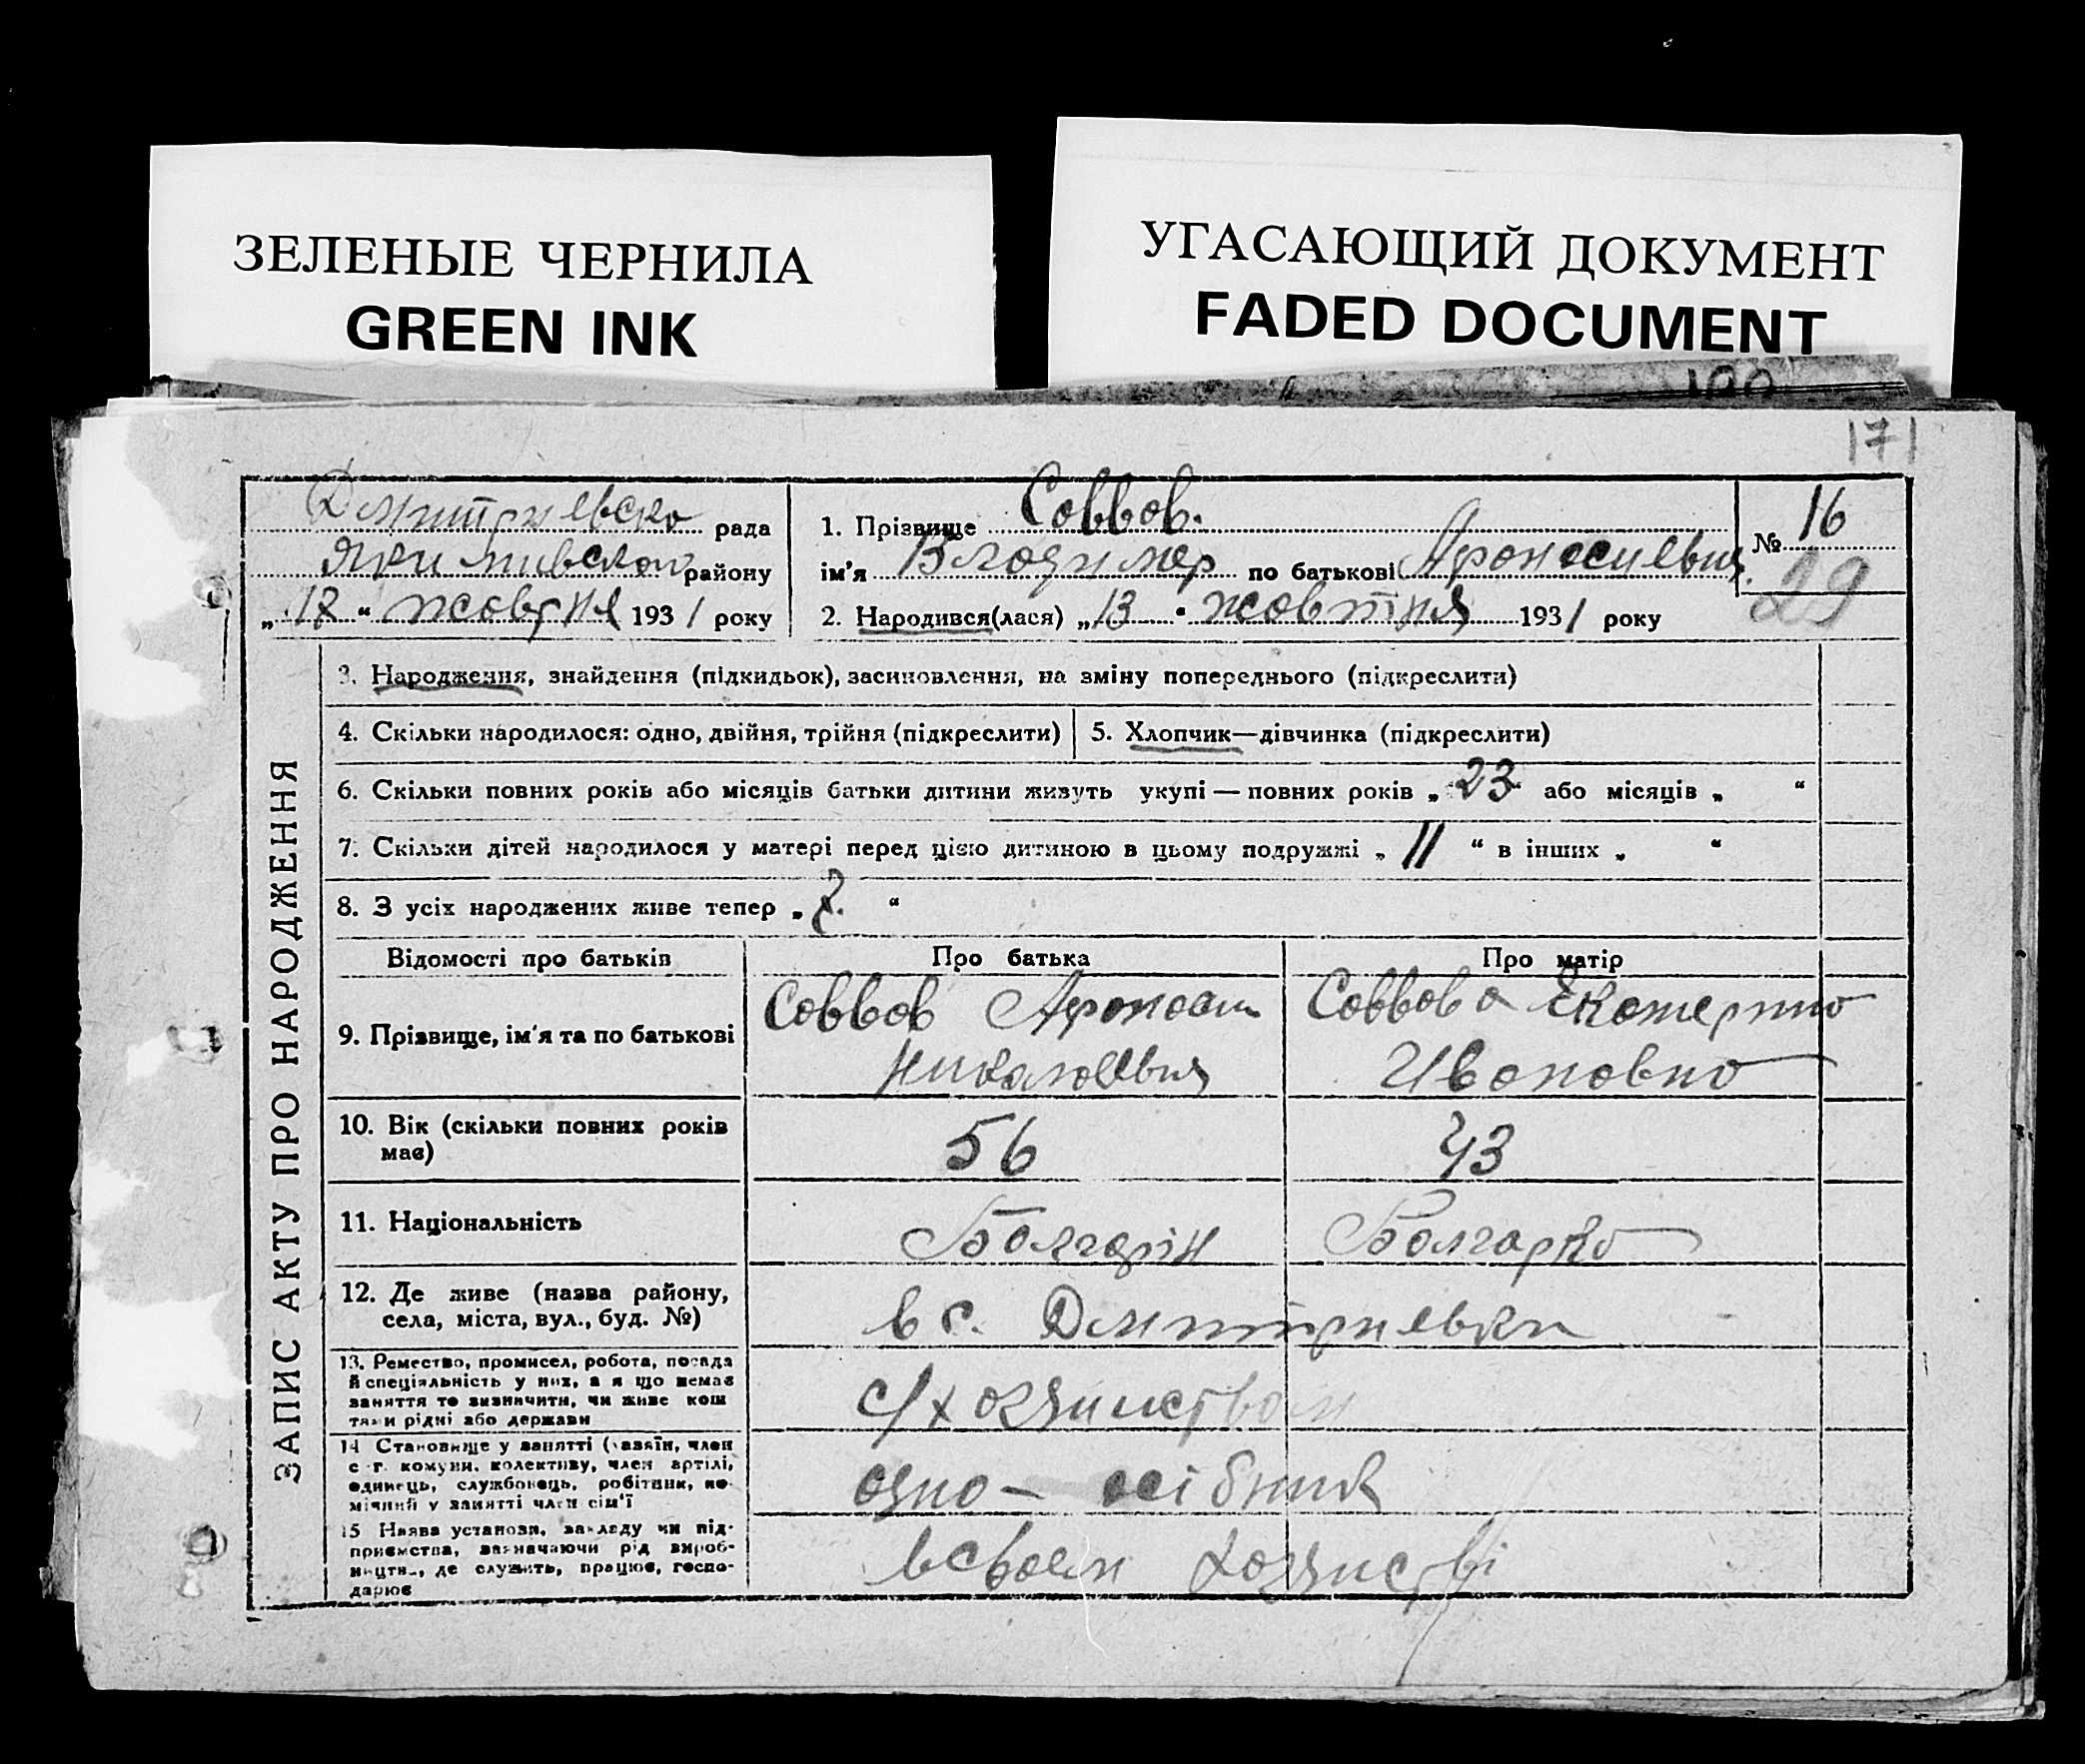 ЗЕЛЕНЫЕ ЧЕРНИЛА
GREEN INK
УГАСАЮЩИЙ ДОКУМЕНТ
FADED DOCUMENT
171
Дмитриевско рада
района
„17“ жовтня 1931 року
1. Прізвище Соввов.
ім'я Володимер по батькові Афонасиевич
2. Народився(лася) „13“ жовтня 1931 року
№ 16
29
ЗАПИС АКТУ ПРО НАРОДЖЕННЯ
3. Народження, знайдення (підкидьок), засиновлення, на зміну попереднього (підкреслити)
4. Скільки народилося: одно, двійня, трійня (підкреслити)
5. Хлопчик—дівчинка (підкреслити)
6. Скільки повних років або місяців батьки дитини живуть укупі — повних років „23 або місяців „ “
7. Скільки дітей народилося у матері перед цією дитиною в цьому подружжі „11“ в інших „ “
8. З усіх народжених живе тепер „ “
Відомості про батьків Про батька Про матір
9. Прізвище, ім'я та по батькові
Соввов Афонасий
Николаевич
Соввова Екатерина
Ивановна
10. Вік (скільки повних років
має)
56 43
11. Національність Болгарін Болгарка
12. Де живе (назва району,
села, міста, вул., буд. №)
в с. Дмитриевки
13. Ремество, промисел, робота, посада
й спеціяльність у них, а я що немає
заняття то визначити, чи живе кош
тами рідні або держави
с/хозяиством
14 Становище у занятті (хазяїн, член
с.-г. комуни, колективу, член артілі,
одинець, службовець, робітник, по-
мічний у занятті член сім'ї
одно- осібник
15 Назва установи, закладу чи під-
приємства, зазначаючи рід вироб-
ництва, де служить, працює, госпо-
дарює
в своем хозяистві